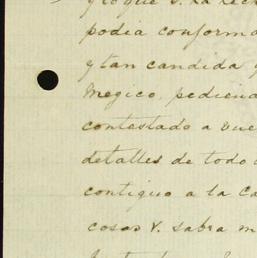 y lo que S. la
podia conforma
y tan candida y
Megico, pediend
contestado a vue
detalles de todo
contiguo a la ca
cosas V. sabra m